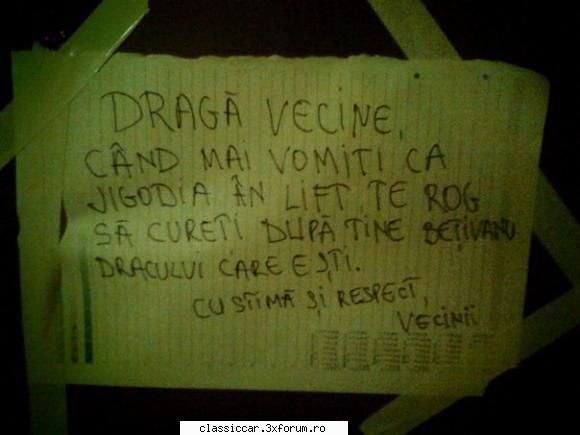 DRAGĂ VECINE,
CÂND MAI VOMITI CA
JIGODIA ÂN LIFT TE ROG
SĂ CURETI DUPĂ TINE BEȚIVANU
DRACULUI CARE EȘTI.
CU STIMĂ ȘI RESPECT,
VECINII
classiccar.3xforum.ro